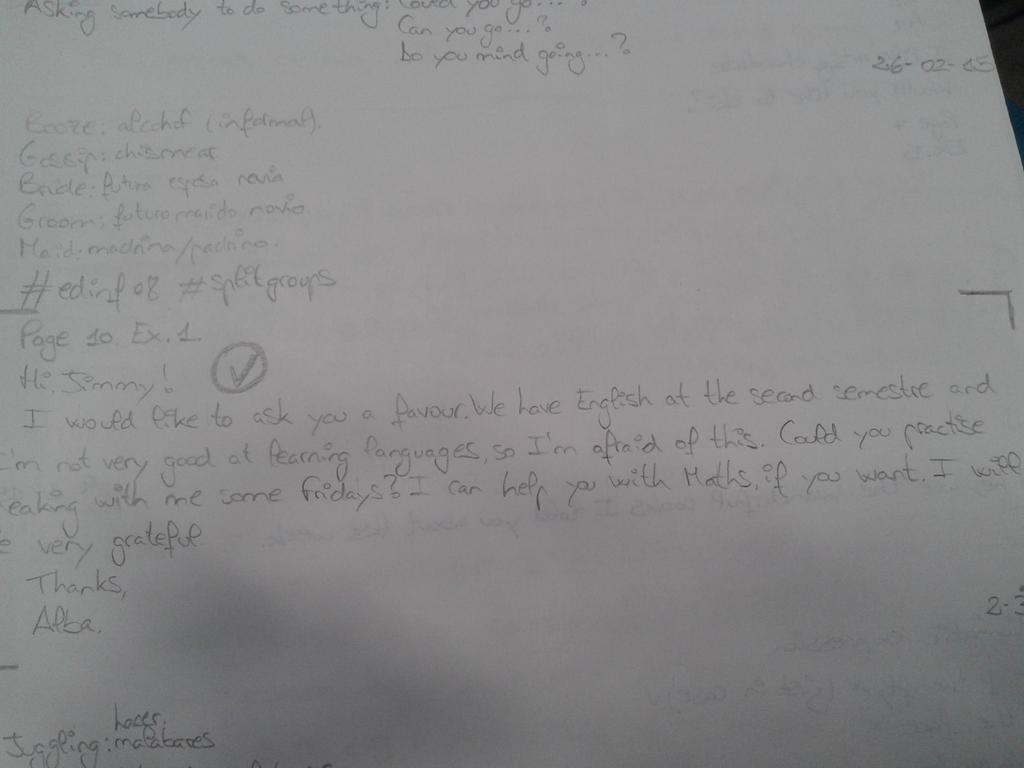 Asking somebody to do something: Could you go...?
Can you go...?
Do you mind going...?
26-02-15
Booze: alcohol (informal).
Gossip: chismear
Bride: futura esposa novia
Groom: futuro marido novio
Maid: madrina/padrino.
#edinf08 #splitgroups
Page 10 Ex. 1.
Hi, Jimmy!
I would like to ask you a favour. We have English at the second semestre and
I'm not very good at learning languages, so I'm afraid of this. Could you practise
eaking with me some Fridays? I can help you with Maths, if you want. I will
e very grateful
Thanks,
Alba.
hacer
Juggling: malabares